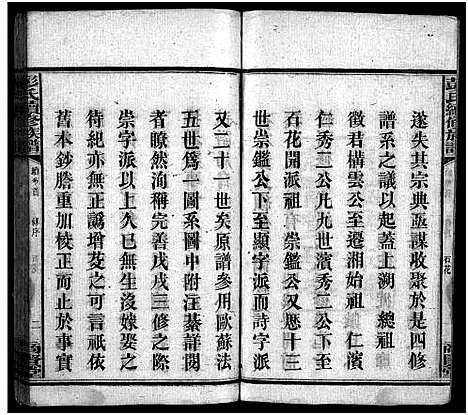 彭氏續修族譜
石花
遂失其宗典亟謀收聚於是四修
譜系之議以起蓋上溯 總祖
徵君構雲公至遷湘始祖 仁濱
仁秀二公凡九世濱秀二公下至
石花開派祖 崇鑑公又歷十三
世自 崇鑑公下至顯字派而詩字派
又二十一世矣原譜參用歐蘇法
五世爲一圖系圖中附注綦詳閱
者瞭然洵稱完善戊戌三修
崇字派以上久已無生歿娶葬之
待紀亦無正譌增芟之可言祇依
舊本鈔謄重加校正而止於事實
彭氏續修族譜
卷首
譜序
二